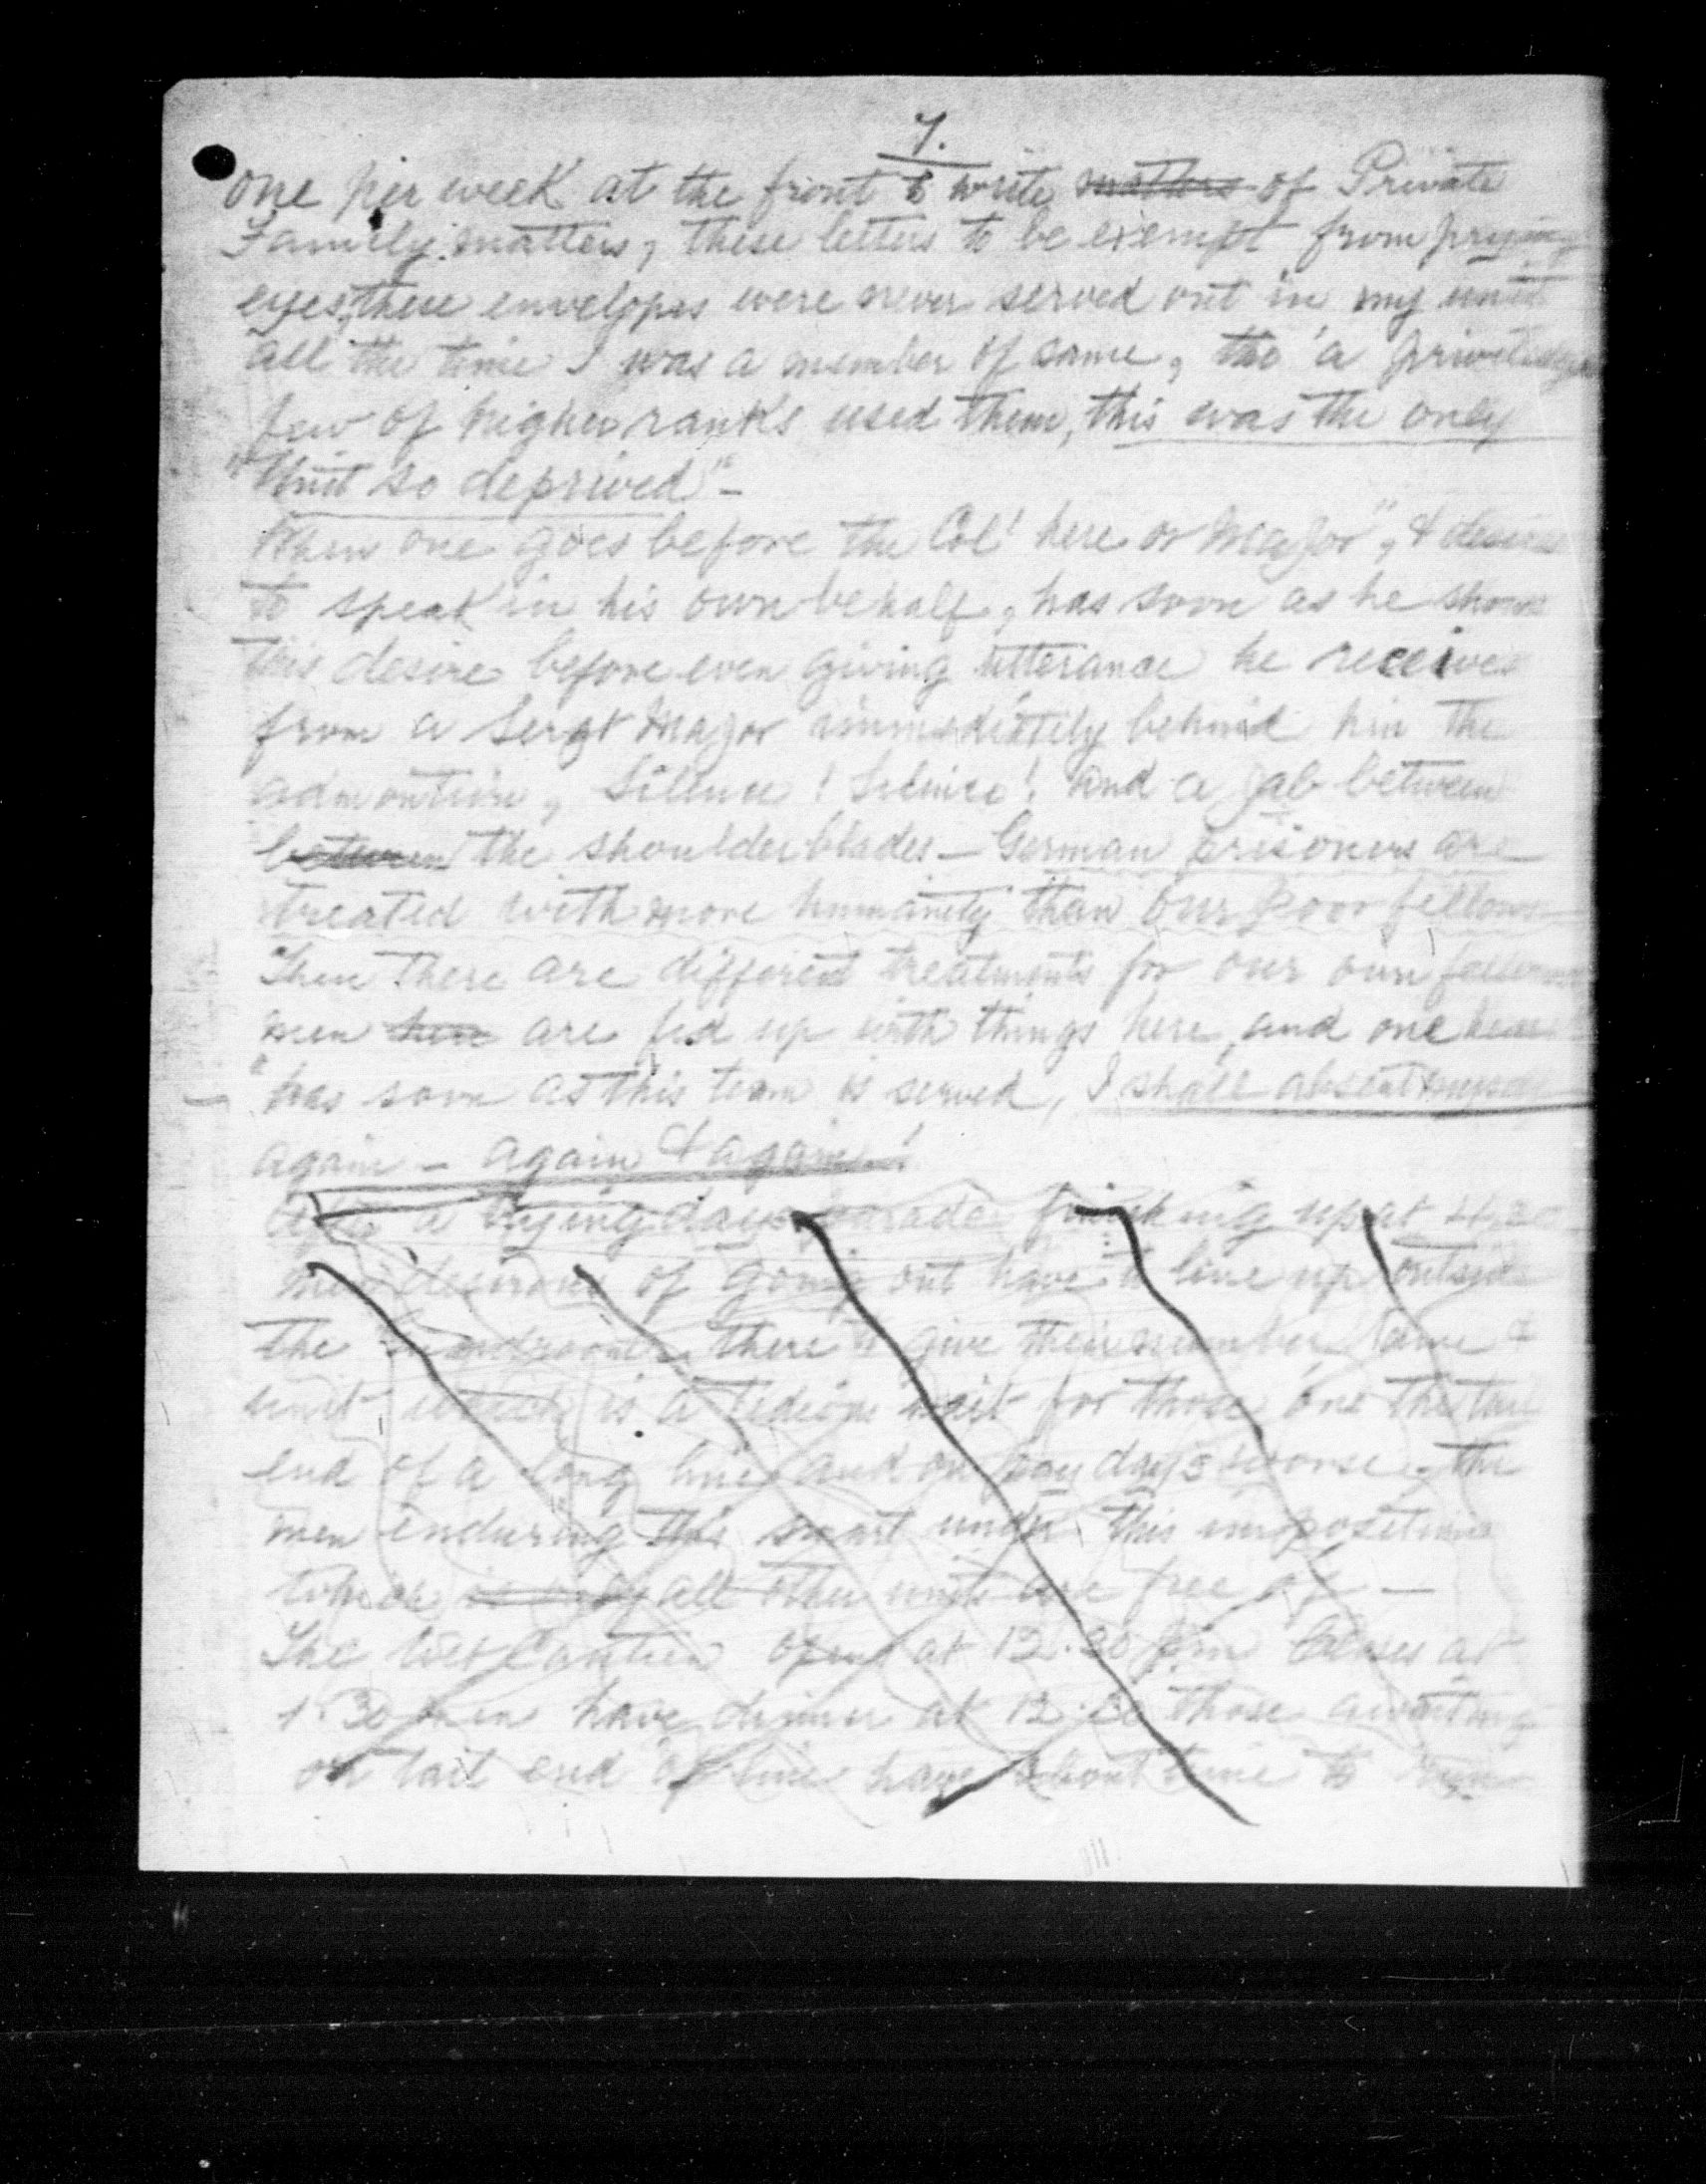 7.
one per week at the front to write matters of Private
Family matters, these letters to be exempt from prying
eyes, these envelopes were never served out in my unit
all the time I was a member of same, tho' a privileged
few of higher ranks used them, this was the only
"Unit so deprived" -
When one goes before the Col' here or Major", & desires
to speak in his own behalf, has soon as he shows
this desire before even giving utterance he receives
from a Sergt Major immediately behind him the
admonition, Silence! Silence! and a jab between
between the shoulder blades - German prisoners are
treated with more humanity than our poor fellows
Then there are different treatments for our own fellows
men here are fed up with things here, and one hears
"has soon as this term is served, I shall absent myself
again - again & again!
After a trying days parade finishing up at 4.30
men desirous of going out have to line up outside
the there to give their number, name &
unit which is a tedious wait for those one the tail
end of a long line and on pay days worse, the
men enduring this smart under this imposition
which all other units are free of -
The Wet Canteen opens at 12.30 p.m Closes at
1.30 men have dinner at 12.30 those awaiting
on tail end of line have about time to